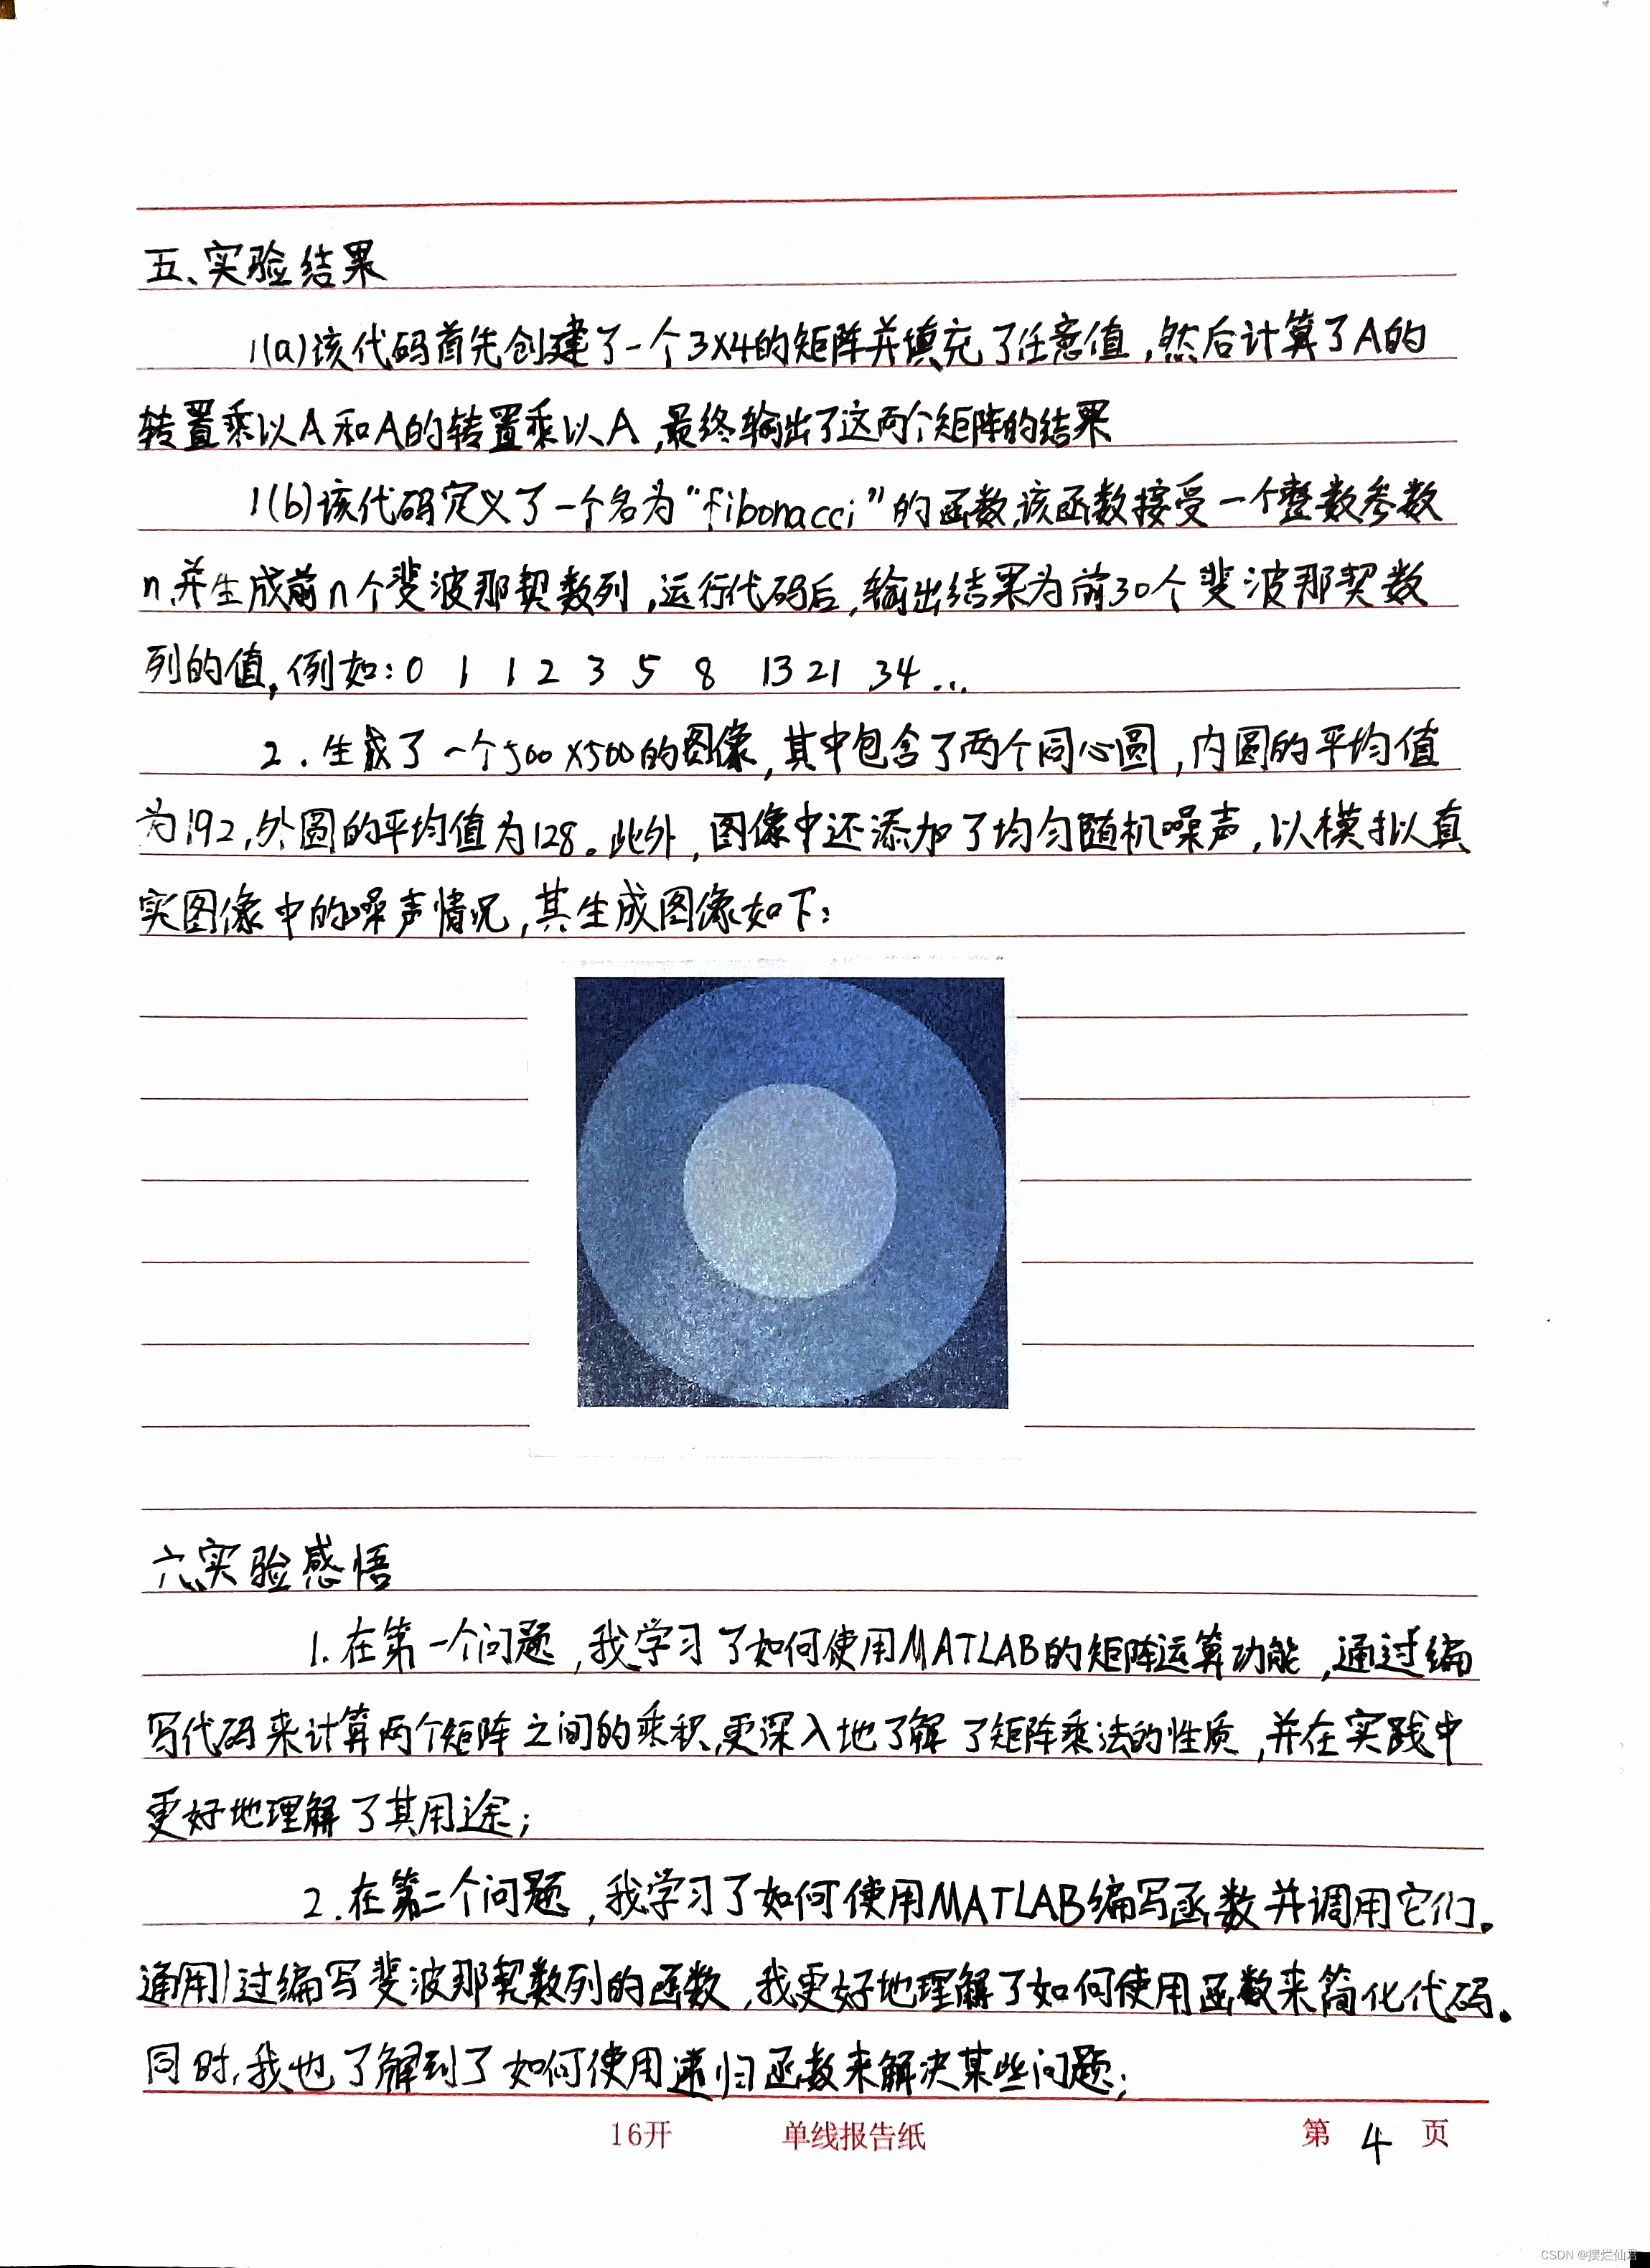 五、实验结果
1(a)该代码首先创建了一个3×4的矩阵并填充了任意值,然后计算了A的
转置乘以A和A的转置乘以A,最终输出了这两个矩阵的结果
1(b)该代码定义了一个名为“fibonacci”的函数,该函数接受一个整数参数
n,并生成前n个斐波那契数列,运行代码后,输出结果为前30个斐波那契数
列的值,例如:0 1 1 2 3 5 8 13 21 34...
2.生成了一个500×500的图像,其中包含了两个同心圆,内圆的平均值
为192,外圆的平均值为128。此外,图像中还添加了均匀随机噪声,以模拟真
实图像中的噪声情况,其生成图像如下:
六、实验感悟
1.在第一个问题,我学习了如何使用MATLAB的矩阵运算功能,通过编
写代码来计算两个矩阵之间的乘积,更深入地了解了矩阵乘法的性质,并在实践中
更好地理解了其用途;
2.在第二个问题,我学习了如何使用MATLAB编写函数并调用它们。
通过编写斐波那契数列的函数,我更好地理解了如何使用函数来简化代码。
同时,我也了解到了如何使用递归函数来解决某些问题;
16开 单线报告纸 第 4 页
CSDN @摆烂仙君